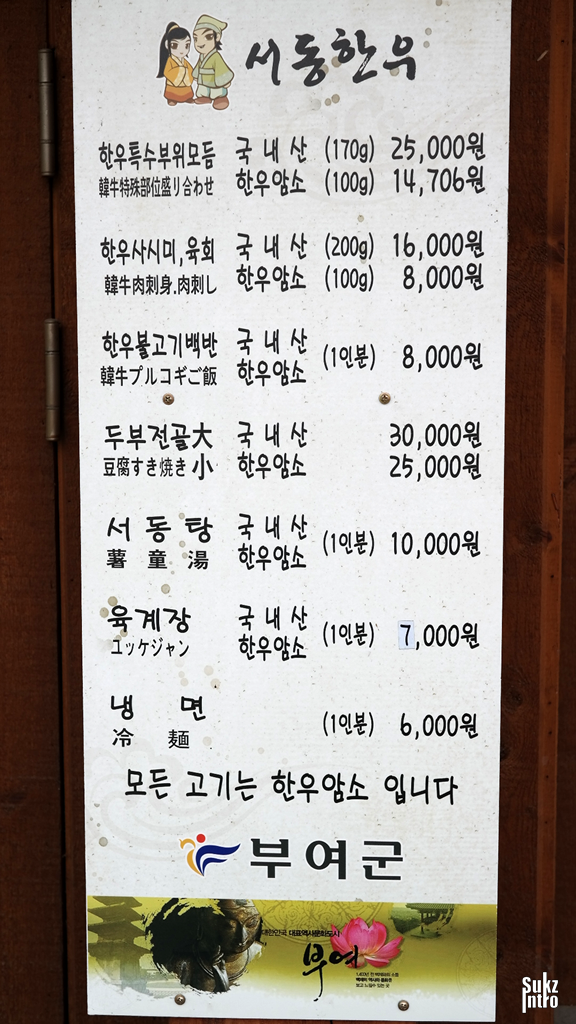 서동한우
한우특수부위모듬 국내산 (170g) 25,000원
韓牛特殊部位盛り合わせ 한우암소 (100g) 14,706원
한우사시미,육회 국내산 (200g) 16,000원
韓牛肉刺身.肉刺し 한우암소 (100g) 8,000원
한우불고기백반 국내산 (1인분) 8,000원
韓牛プルコギご飯 한우암소
두부전골大 국내산 30,000원
豆腐すき焼き小 한우암소 25,000원
서동탕 국내산 (1인분) 10,000원
薯童湯 한우암소
육계장 국내산 (1인분) 7,000원
ユッケジャン 한우암소
냉면 (1인분) 6,000원
冷麺
모든 고기는 한우암소 입니다
부여군
대한민국 대표역사문화도시
부여
Sukz
Intro